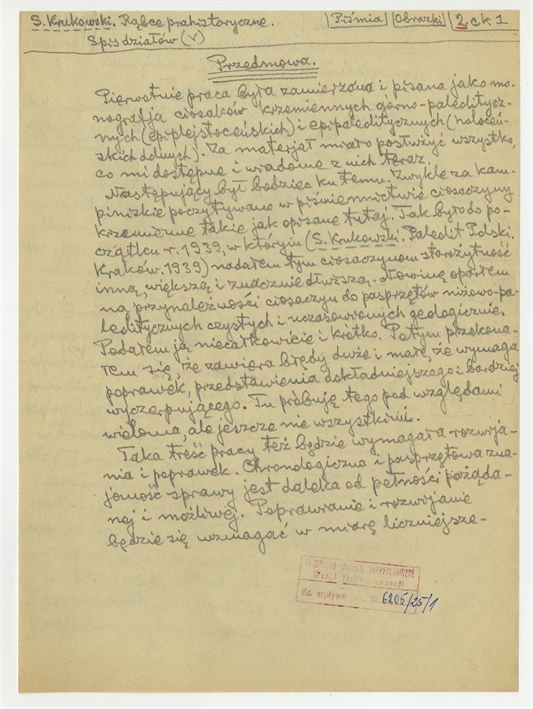 S. Krukowski. Rąbce prahistoryczne.
Spis działów (V)
Piśmia Obrazki 2. ck 1
Przedmowa.
Pierwotnie praca była zamierzona i pisana jako mo-
nografja ciosaków krzemiennych górno-paleolitycz-
nych (epiplejstoceńskich) i epipaleolitycznych (holoceń-
skich dolnych). Za materjał miało posłużyć wszystko,
co mi dostępne i wiadome z nich teraz.
Następujący był bodziec ku temu. Zwykle za kam-
pinizkie poczytywano w piśmiennictwie ciosaczyny
krzemienne takie jak opisane tutaj. Tak było do po-
czątku r. 1939, w którym (S. Krukowski. Paleolit Polski.
Kraków. 1939) nadałem tym ciosaczynom starożytność
inną, większą i znacznie dłuższą. Nowinę oparłem
na przynależności ciosaczyn do pasprzętów niżowo-pa-
leolitycznych czystych i uczasowionych geologicznie.
Podałem ją niecałkowicie i krótko. Potym przekona-
łem się, że zawiera błędy duże i małe, że wymaga
poprawek, przedstawienia dokładniejszego i bardziej
wyczerpującego. Tu próbuję tego pod względami
wieloma, ale jeszcze nie wszystkimi.
Taka treść pracy też będzie wymagała rozwija-
nia i poprawek. Chronologiczna i pasprzętowa zna-
jomość sprawy jest daleka od pełności pożąda-
nej i możliwej. Poprawianie i rozwijanie
będzie się wzmagać w miarę liczniejsze-
PAŃSTWOWE MUZEUM ARCHEOLOGICZNE
Dział Dokumentacji
Ks. wpływu 6205/25/1